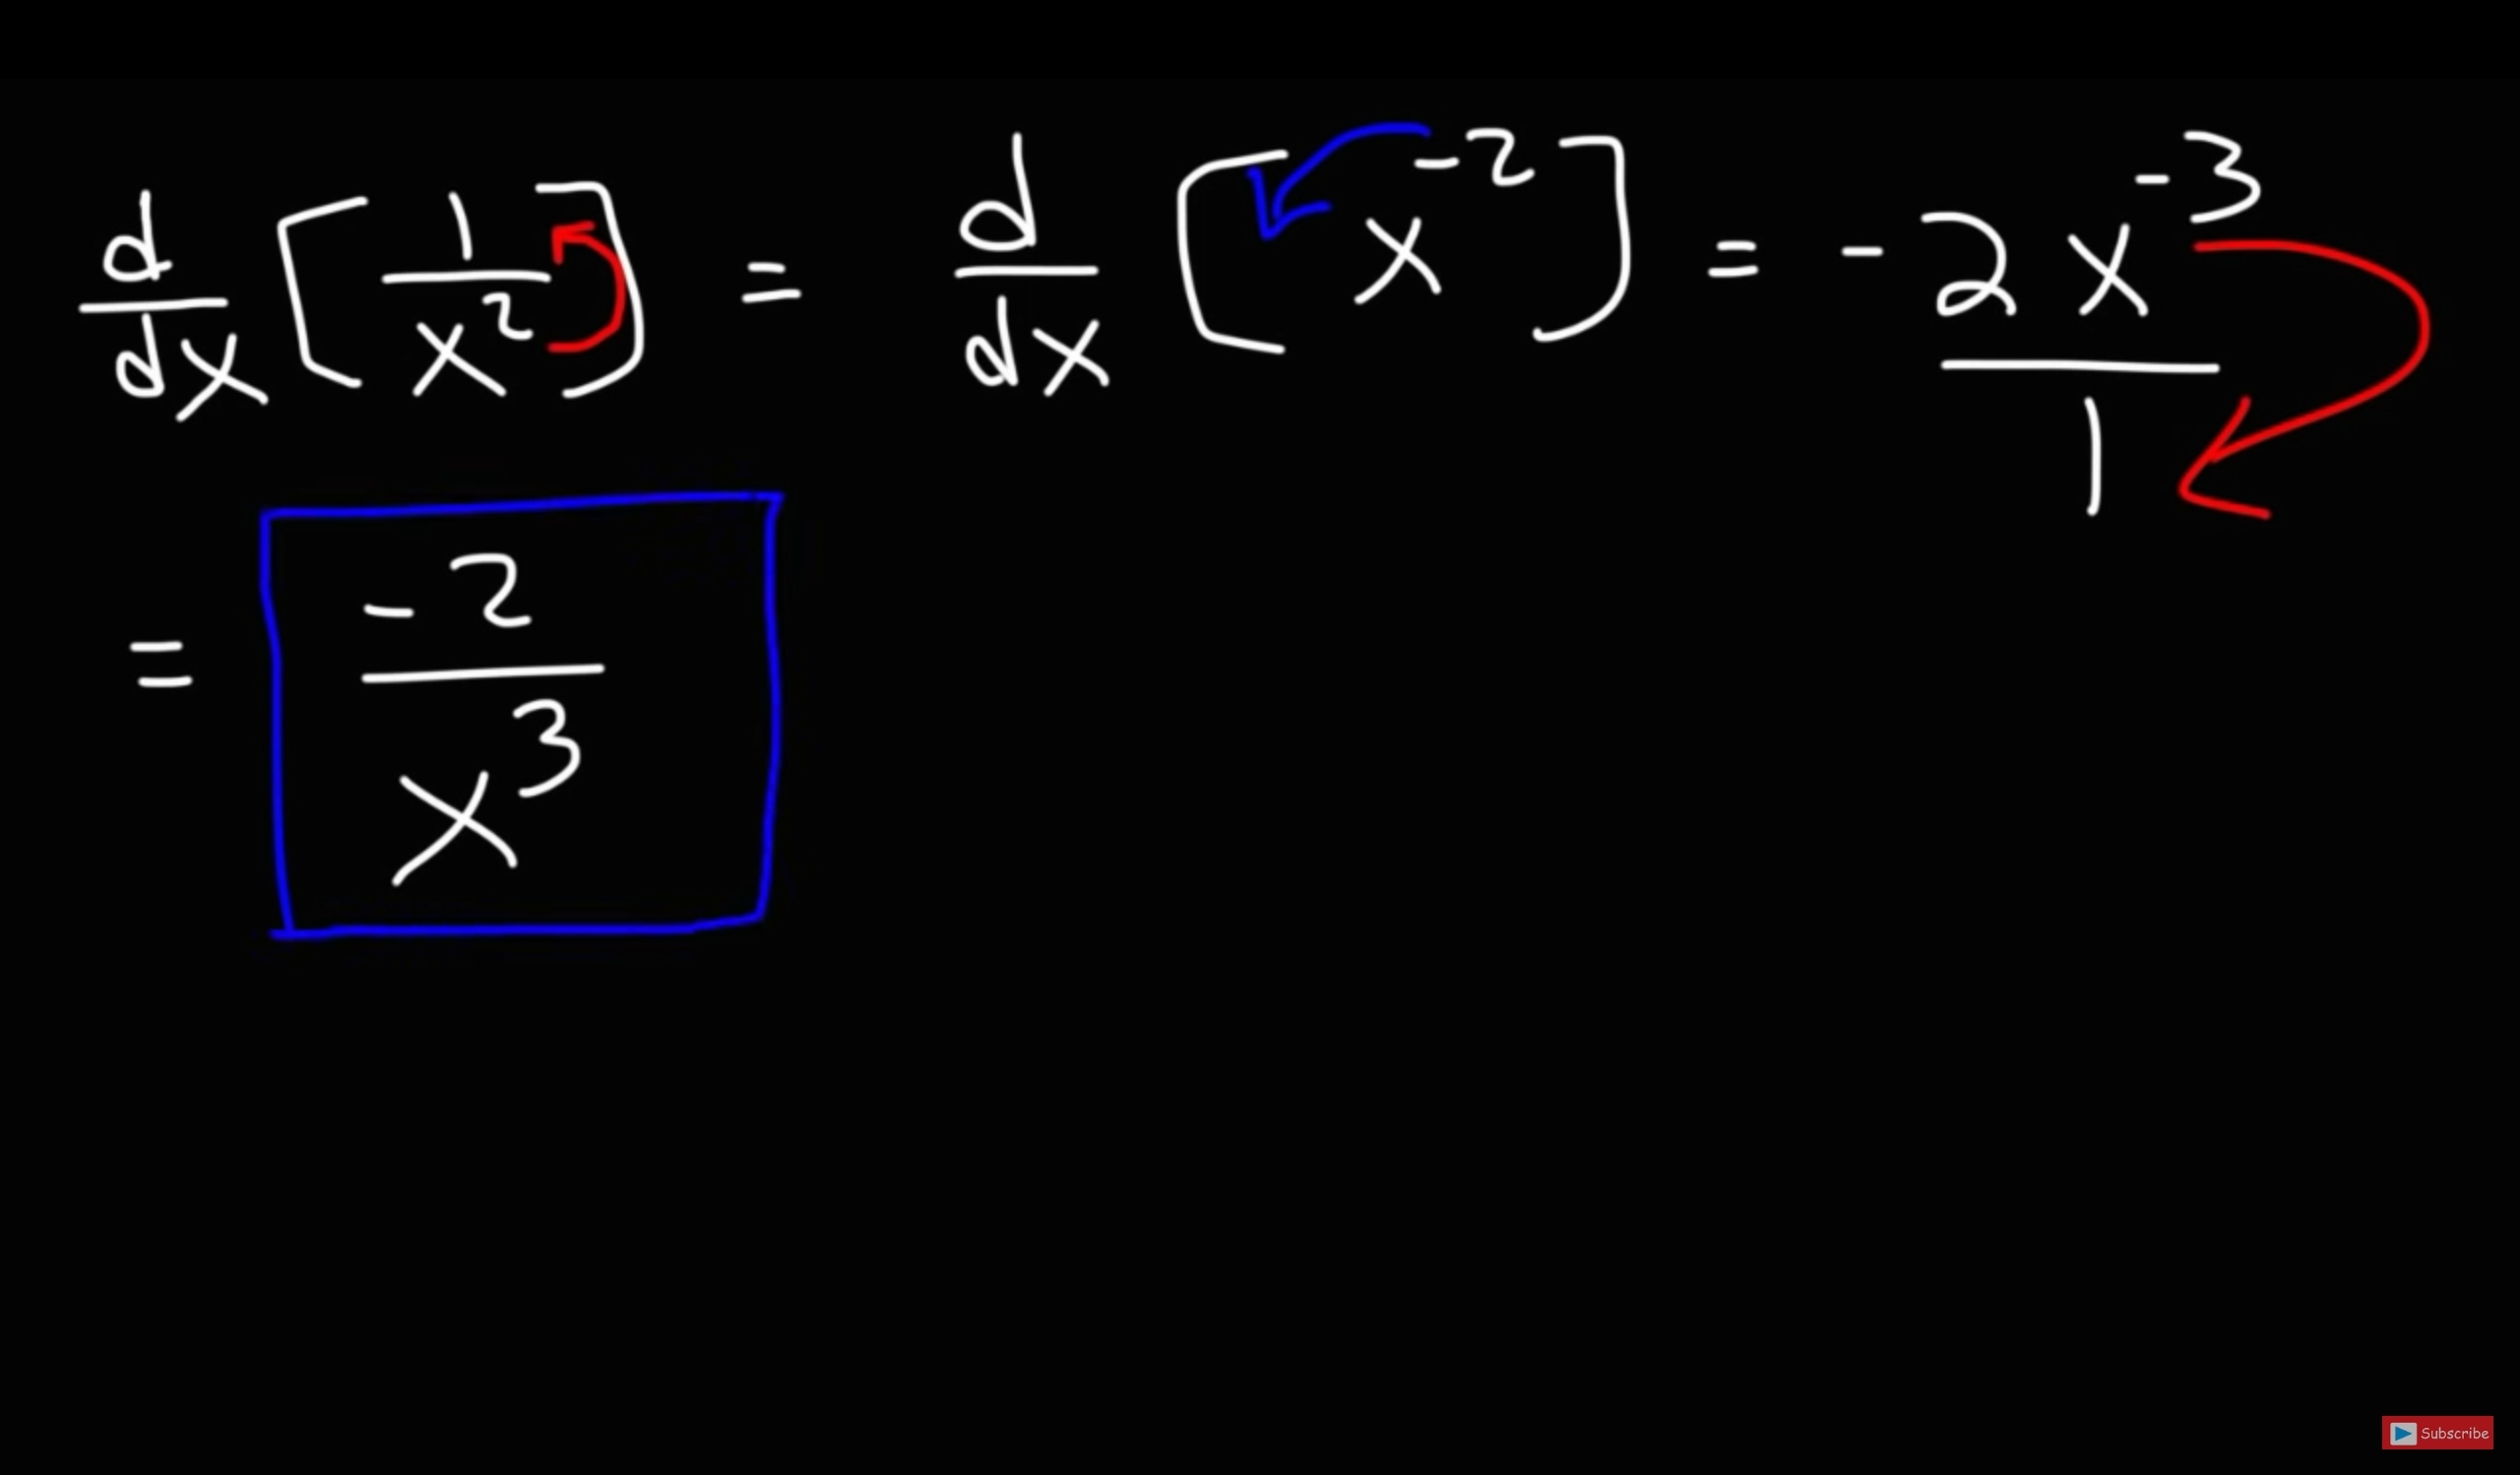 d/dx [1/x²] = d/dx [x⁻²] = -2x⁻³/1
= -2/x³
Subscribe